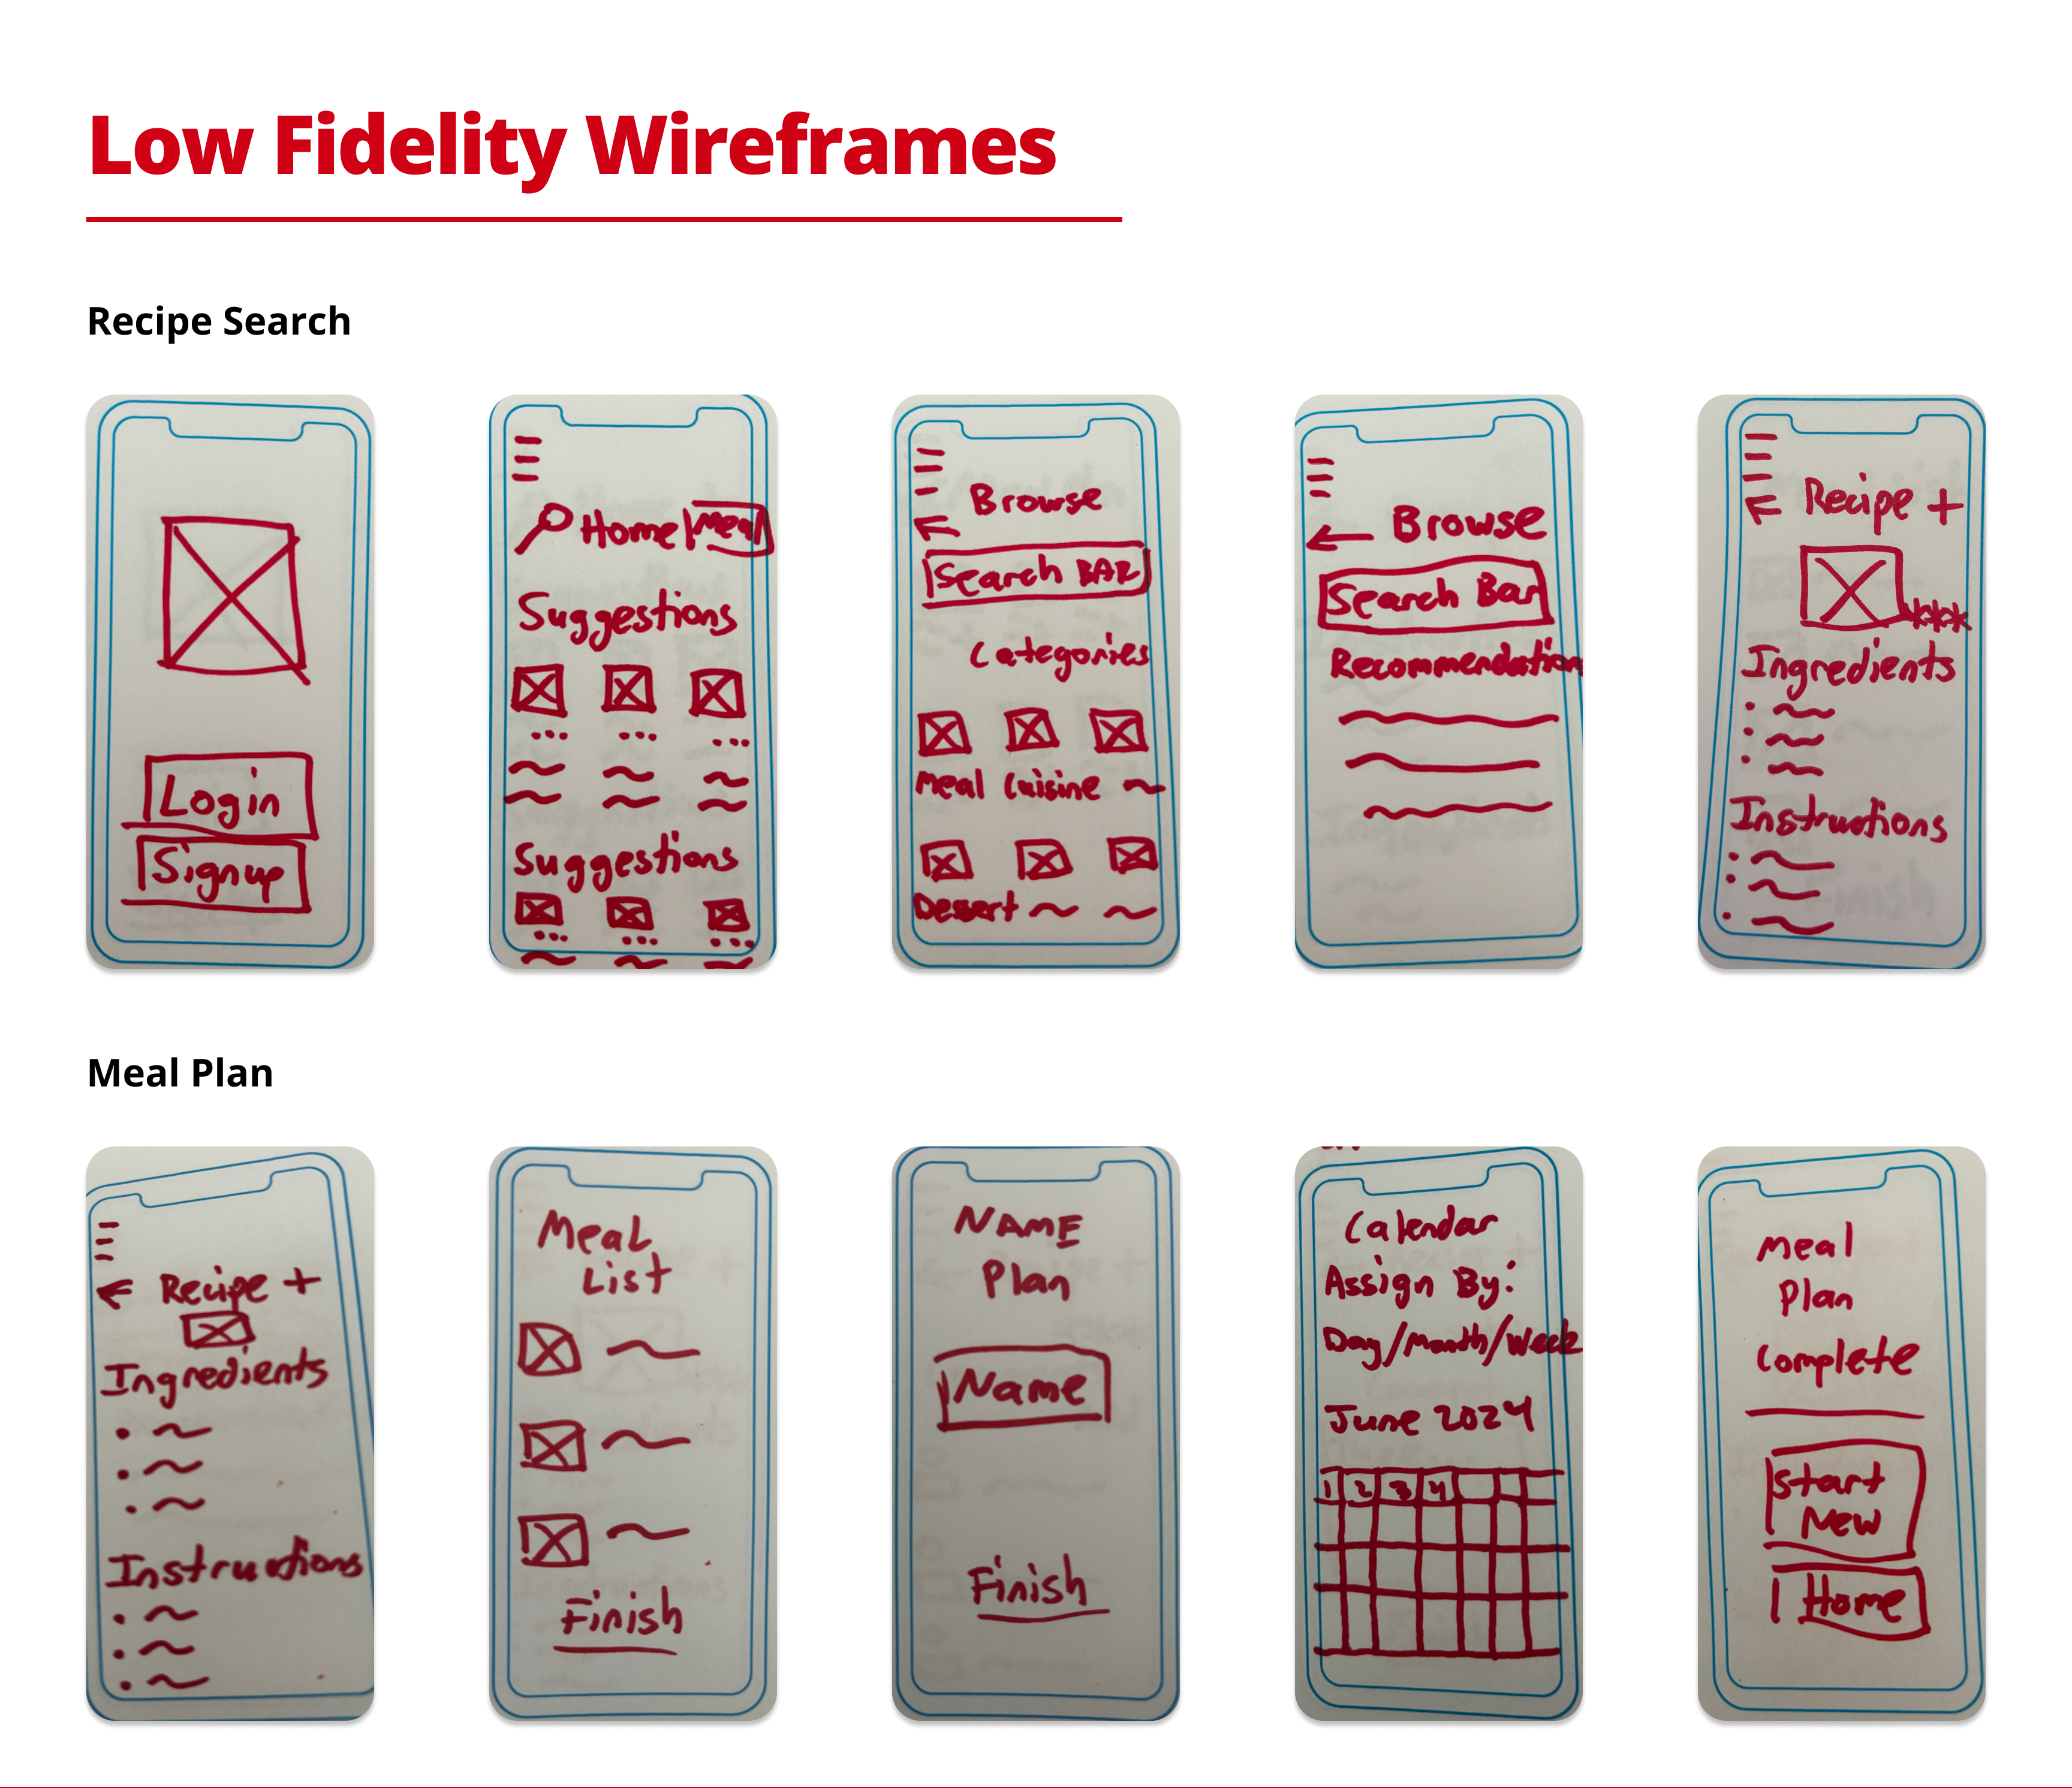 Low Fidelity Wireframes
Recipe Search
Login
Signup
Home Meal
Suggestions
Suggestions
Browse
Search BAR
Categories
Meal Cuisine
Dessert
Browse
Search Bar
Recommendation
Recipe +
Ingredients
Instructions
Meal Plan
Recipe +
Ingredients
Instructions
Meal
List
Finish
NAME
Plan
Name
Finish
Calendar
Assign By:
Day/Month/Week
June 2024
1 2 3 4
Meal
Plan
Complete
Start
New
Home